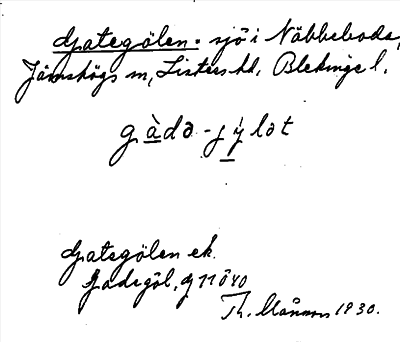 Gategölen. sjö i Näbbeboda,
Jämshögs sn, Listers hd, Blekinge l.
gàdə-jýlət
Gategölen ek.
Gadegöl, gJ1040
Th. 1930.